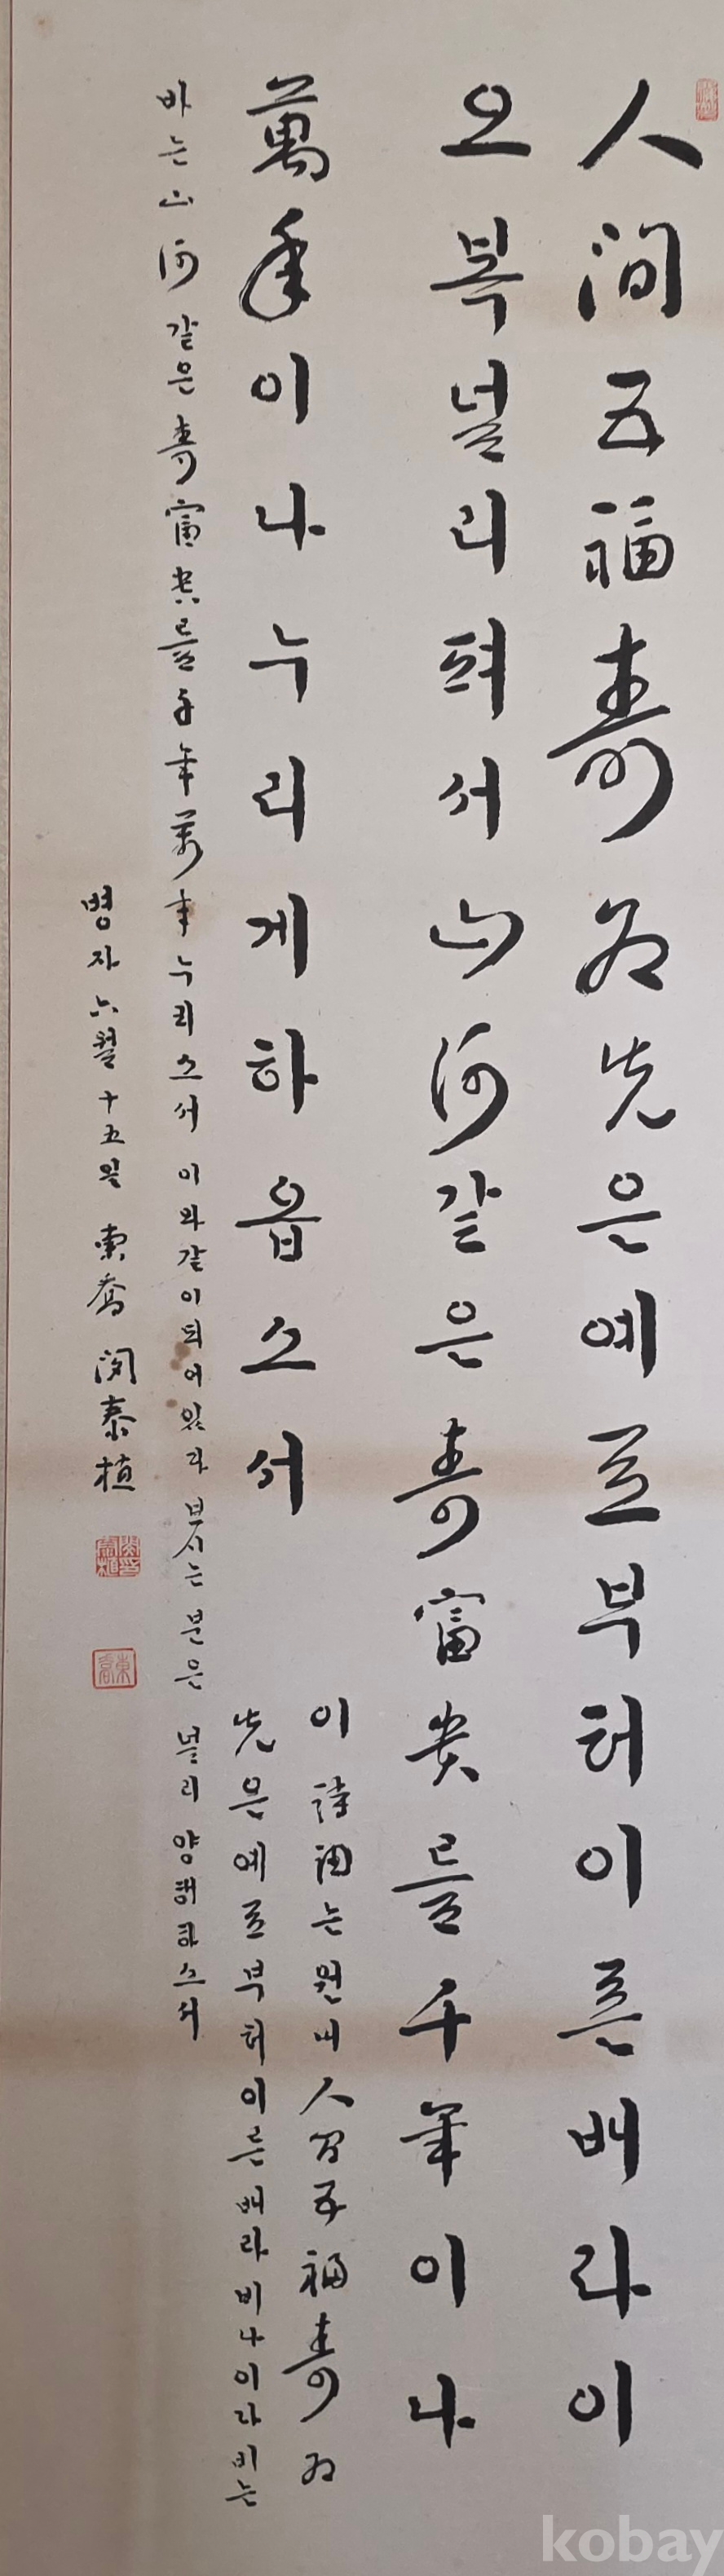 人間五福壽爲先은예로부터이른배라이
오복널리펴서山河같은壽富貴를千年이나
萬年이나누리게하옵소서
이 詩調는원내人間五福壽爲
先은예로부터이른배라비나이다비는
바는山河같은壽富貴를千年萬年누리소서 이와같이되어있다 보시는 분은 널리 양해하소서
병자六월十五일 東喬 閔泰植
kobay